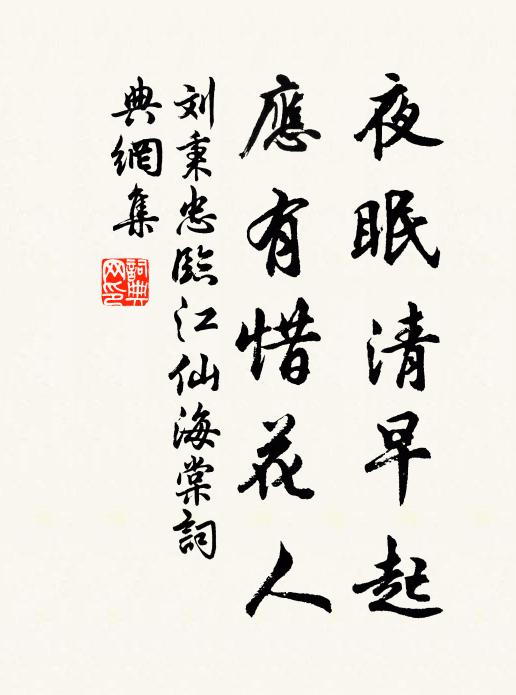 夜眠清早起
應有惜花人
刘秉忠臨江仙海棠詞
典網集
詞典网印